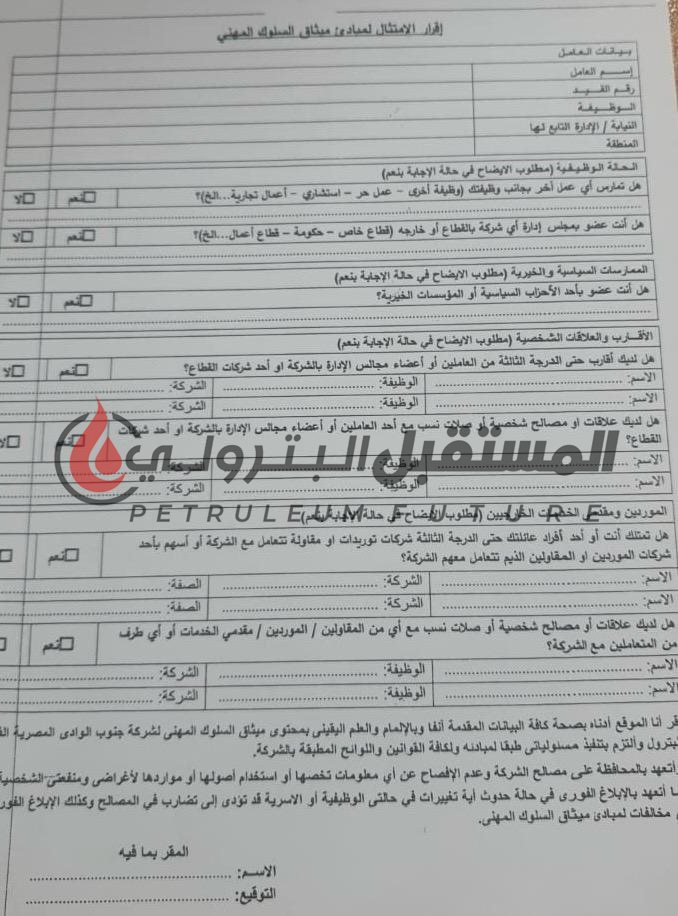 إقرار الإمتثال لمبادئ ميثاق السلوك المهني
بيانات العامل
إسم العامل
رقم القيد
الوظيفة
النيابة / الإدارة التابع لها
المنطقة
الحالة الوظيفية (مطلوب الايضاح في حالة الإجابة بنعم)
هل تمارس أي عمل أخر بجانب وظيفتك (وظيفة أخرى – عمل حر – استشاري – أعمال تجارية...الخ)؟ نعم لا
هل أنت عضو بمجلس إدارة أي شركة بالقطاع أو خارجه (قطاع خاص – حكومة – قطاع أعمال...الخ)؟ نعم لا
الممارسات السياسية والخيرية (مطلوب الايضاح في حالة الإجابة بنعم)
هل أنت عضو بأحد الأحزاب السياسية أو المؤسسات الخيرية؟ نعم لا
الأقارب والعلاقات الشخصية (مطلوب الايضاح في حالة الإجابة بنعم)
هل لديك أقارب حتى الدرجة الثالثة من العاملين أو أعضاء مجالس الإدارة بالشركة او أحد شركات القطاع؟ نعم لا
الاسم: الوظيفة: الشركة:
الاسم: الوظيفة: الشركة:
هل لديك علاقات او مصالح شخصية أو صلات نسب مع أحد العاملين أو أعضاء مجالس الإدارة بالشركة او أحد شركات نعم لا
القطاع؟
المستقبل البترولي
الاسم: الوظيفة: الشركة:
الاسم: الوظيفة: الشركة:
PETRULEUM FUTURE
الموردين ومقدمي الخدمات الخارجيين (مطلوب الايضاح في حالة الإجابة بنعم)
هل تمتلك أنت أو أحد أفراد عائلتك حتى الدرجة الثالثة شركات توريدات او مقاولة تتعامل مع الشركة أو أسهم بأحد نعم
شركات الموردين او المقاولين الذيم تتعامل معهم الشركة؟
الاسم: الشركة: الصفة:
الاسم: الشركة: الصفة:
هل لديك علاقات أو مصالح شخصية أو صلات نسب مع أي من المقاولين / الموردين / مقدمي الخدمات أو أي طرف نعم
من المتعاملين مع الشركة؟
الاسم: الوظيفة: الشركة:
الاسم: الوظيفة: الشركة:
أنا الموقع أدناه بصحة كافة البيانات المقدمة أنفا وبالإلمام والعلم اليقينى بمحتوى ميثاق السلوك المهنى لشركة جنوب الوادى المصرية
وألتزم بتنفيذ مسئولياتى طبقا لمبادئه ولكافة القوانين واللوائح المطبقة بالشركة.
وأتعهد بالمحافظة على مصالح الشركة وعدم الإفصاح عن أي معلومات تخصها أو استخدام أصولها أو مواردها لأغراضى ومنفعتى الشخصية
أتعهد بالإبلاغ الفورى في حالة حدوث أية تغييرات في حالتى الوظيفية أو الاسرية قد تؤدى إلى تضارب في المصالح وكذلك الإبلاغ
مخالفات لمبادئ ميثاق السلوك المهنى.
المقر بما فيه
الاسم:
التوقيع: